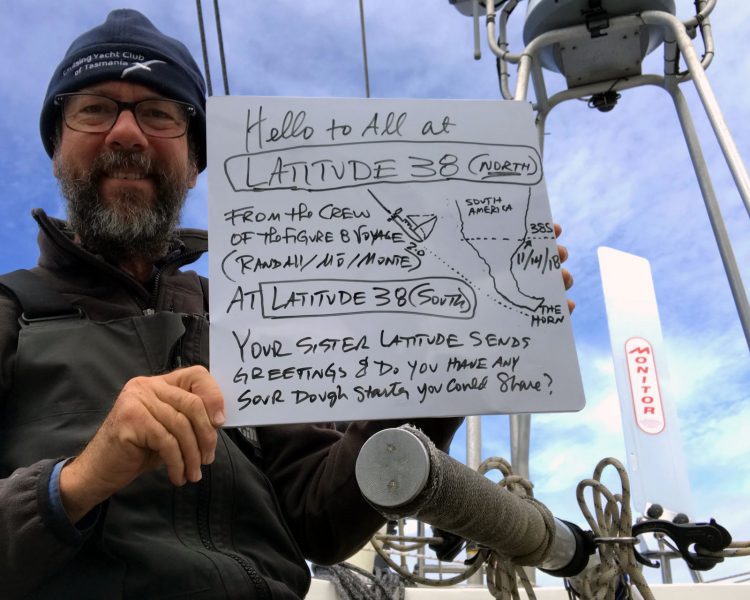 Cruising Yacht Club
of Tasmania
Hello to All at
LATITUDE 38 (NORTH)
FROM the CREW
OF the FIGURE 8 VOYAGE
(RANDALL/MO/MONTE)
AT LATITUDE 38 (SOUTH)
YOUR SISTER LATITUDE SENDS
GREETINGS & DO YOU HAVE ANY
SOUR DOUGH Starter you Could Share?
2.0
SOUTH
AMERICA
38S
11/14/18
THE
HORN
MONITOR